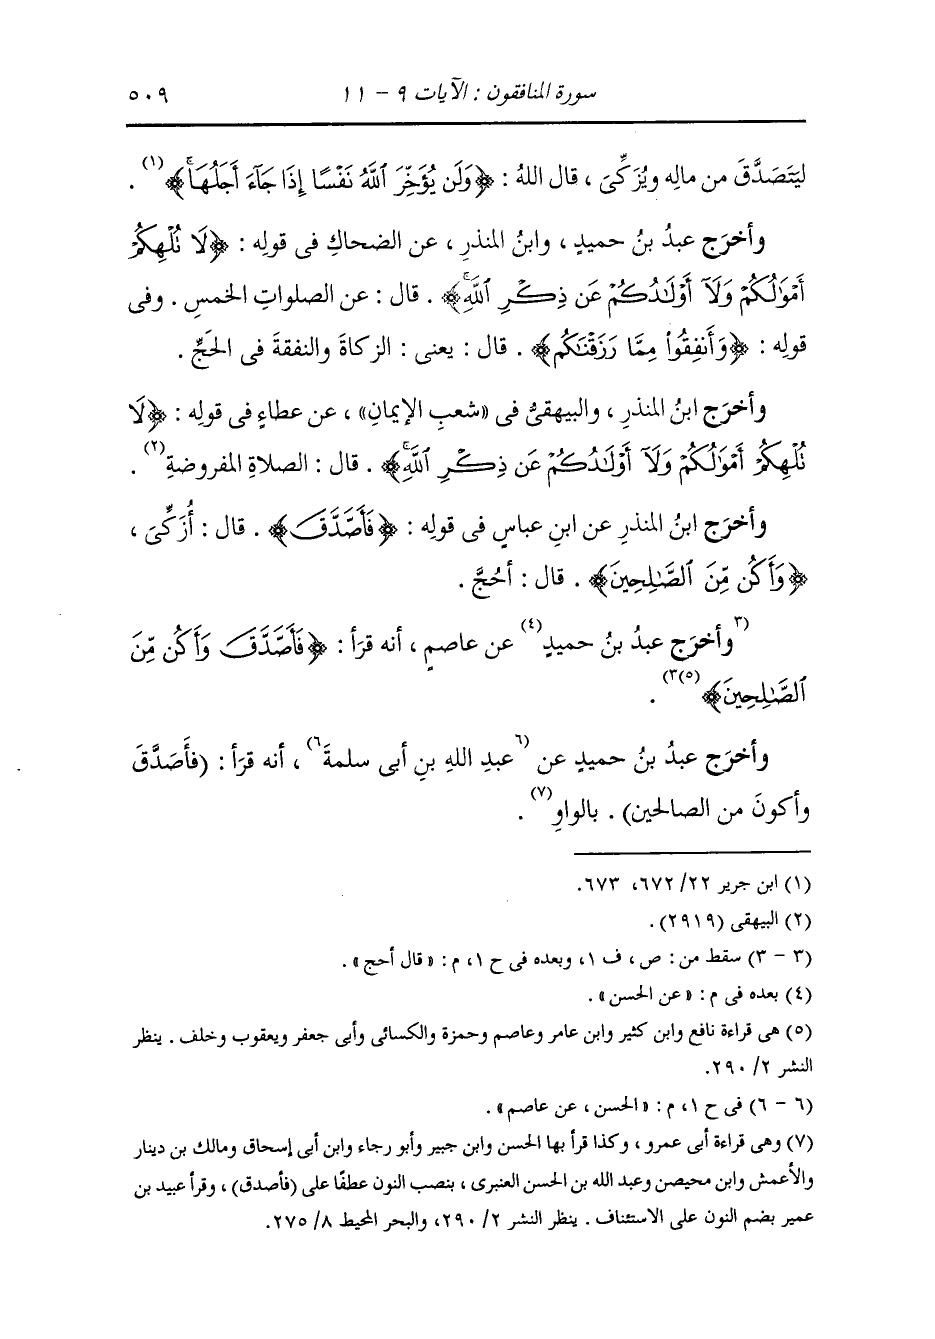 سورة المنافقون : الآيات ٩ - ١١ ٥٠٩
ليَتَصَدَّقَ من مالِه ويُزَكِّىَ ، قال اللهُ : ﴿وَلَن يُؤَخِّرَ ٱللَّهُ نَفْسًا إِذَا جَآءَ أَجَلُهَاۚ﴾(١) .
وأخرَج عبدُ بنُ حميدٍ ، وابنُ المنذرِ ، عن الضحاكِ فى قولِه : ﴿لَا تُلْهِكُمْ
أَمْوَٰلُكُمْ وَلَآ أَوْلَٰدُكُمْ عَن ذِكْرِ ٱللَّهِۚ﴾ . قال : عن الصلواتِ الخمسِ . وفى
قولِه : ﴿وَأَنفِقُوا۟ مِمَّا رَزَقْنَٰكُم﴾ . قال : يعنى : الزكاةَ والنفقةَ فى الحَجِّ .
وأخرَج ابنُ المنذرِ ، والبيهقىُّ فى «شعبِ الإيمانِ» ، عن عطاءٍ فى قولِه : ﴿لَا
تُلْهِكُمْ أَمْوَٰلُكُمْ وَلَآ أَوْلَٰدُكُمْ عَن ذِكْرِ ٱللَّهِۚ﴾ . قال : الصلاةِ المفروضةِ(٢) .
وأخرَج ابنُ المنذرِ عن ابنِ عباسٍ فى قولِه : ﴿فَأَصَّدَّقَ﴾ . قال : أُزَكِّىَ ،
﴿وَأَكُن مِّنَ ٱلصَّٰلِحِينَ﴾ . قال : أحُجَّ .
(٣وأخرَج عبدُ بنُ حميدٍ(٤) عن عاصمٍ ، أنه قرَأ : ﴿فَأَصَّدَّقَ وَأَكُن مِّنَ
ٱلصَّٰلِحِينَ﴾(٥)٣) .
وأخرَج عبدُ بنُ حميدٍ عن (٦عبدِ اللهِ بنِ أبى سلمةَ٦) ، أنه قرَأ : (فأَصَدَّقَ
وأكونَ من الصالحين) . بالواوِ(٧) .
(١) ابن جرير ٢٢/ ٦٧٢، ٦٧٣.
(٢) البيهقى (٢٩١٩) .
(٣ - ٣) سقط من : ص ، ف ١، وبعده فى ح ١، م : « قال أحج » .
(٤) بعده فى م : « عن الحسن » .
(٥) هى قراءة نافع وابن كثير وابن عامر وعاصم وحمزة والكسائى وأبى جعفر ويعقوب وخلف . ينظر
النشر ٢/ ٢٩٠.
(٦ - ٦) فى ح ١، م : « الحسن ، عن عاصم » .
(٧) وهى قراءة أبى عمرو ، وكذا قرأ بها الحسن وابن جبير وأبو رجاء وابن أبى إسحاق ومالك بن دينار
والأعمش وابن محيصن وعبد الله بن الحسن العنبرى ، بنصب النون عطفًا على (فأصدق) ، وقرأ عبيد بن
عمير بضم النون على الاستئناف . ينظر النشر ٢/ ٢٩٠، والبحر المحيط ٨/ ٢٧٥.